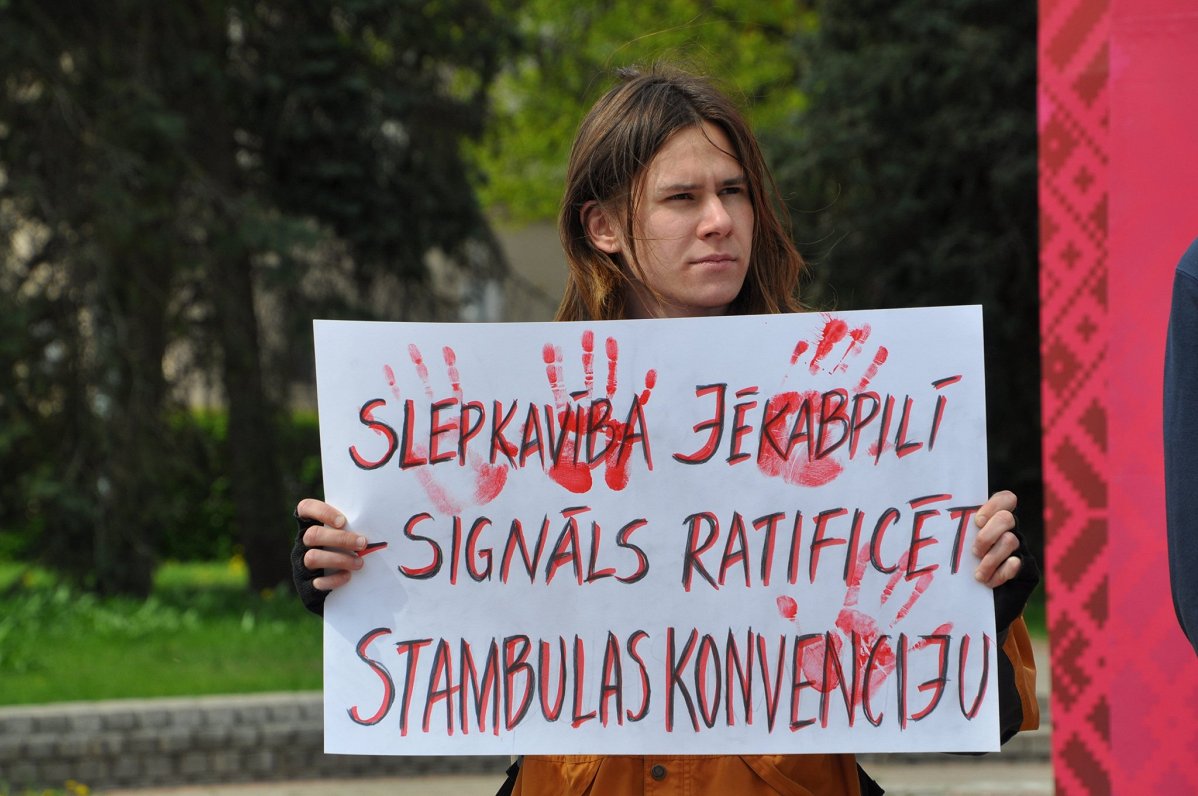 SLEPKAVĪBA JĒKABPILĪ
- SIGNĀLS RATIFICĒT
STAMBULAS KONVENCIJU